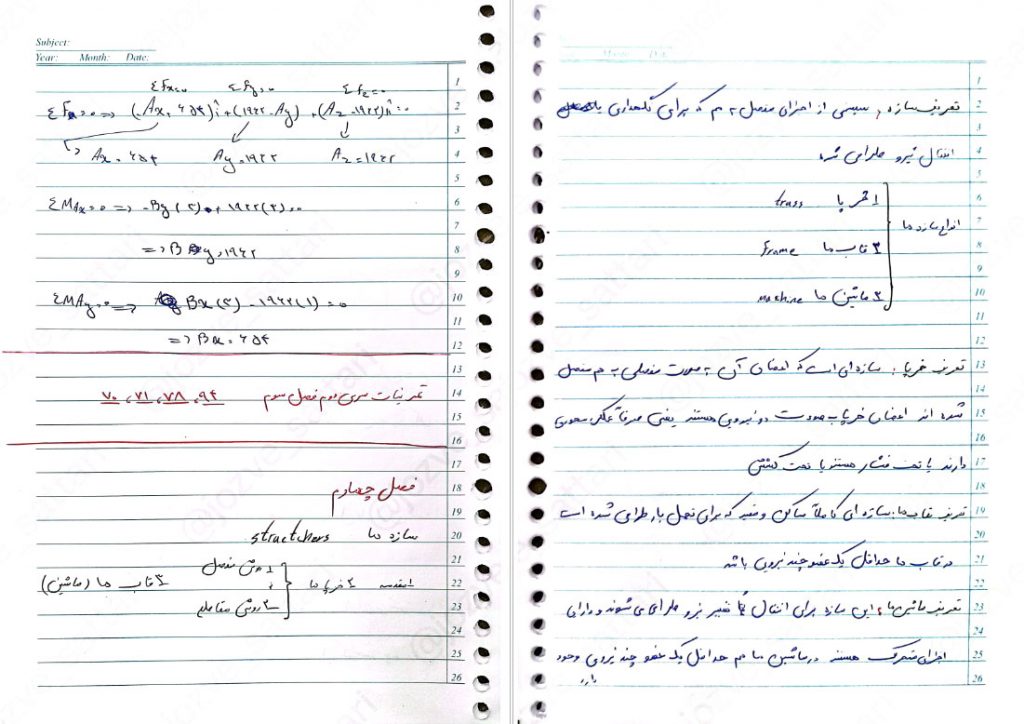 Subject:
Year: Month: Date:
ΣFx=0 ΣFy=0 ΣFz=0
ΣF=0 => (-Ax+654)i+(1962-Ay)+(Az-1962)k=0
Ax=654 Ay=1962 Az=1962
ΣMAx=0 => -By(2)+1962(2)=0
=> By=1962
ΣMAy=0 => Bx(3)-1962(1)=0
=> Bx=654
تمرینات سری دوم فصل سوم ۹۴, ۷۸, ۷۱, ۷۰
فصل چهارم
سازه ها structchers
۱مقدمه ۲ خرپاها ۱-روش مفصل ۲-روش مقاطع ۳ قاب ها (ماشین)
تعریف سازه: سیسمی از اجزای متصل به هم که برای نگهداری یا
انتقال نیرو طراحی شده
انواع سازه ها
۱ خرپا truss
۲ قاب ها Frame
۳ ماشین ها machine
تعریف خرپا: سازه ای است که اعضای آن به صورت مفصلی به هم متصل
شده اند اعضای خرپا به صورت دو نیرویی هستند یعنی صرفاً عکس العمل محوری
دارند یا تحت فشار هستند یا تحت کشش
تعریف قاب ها: سازه ای کاملاً ساکن و مقید که برای تحمل بار طراحی شده است
در قاب ها حداقل یک عضو چند نیرویی باشد
تعریف ماشین ها: این سازه برای انتقال یا تغییر نیرو طراحی می شوند و دارای
اجزای متحرک هستند در ماشین ها هم حداقل یک عضو چند نیرویی وجود
دارد